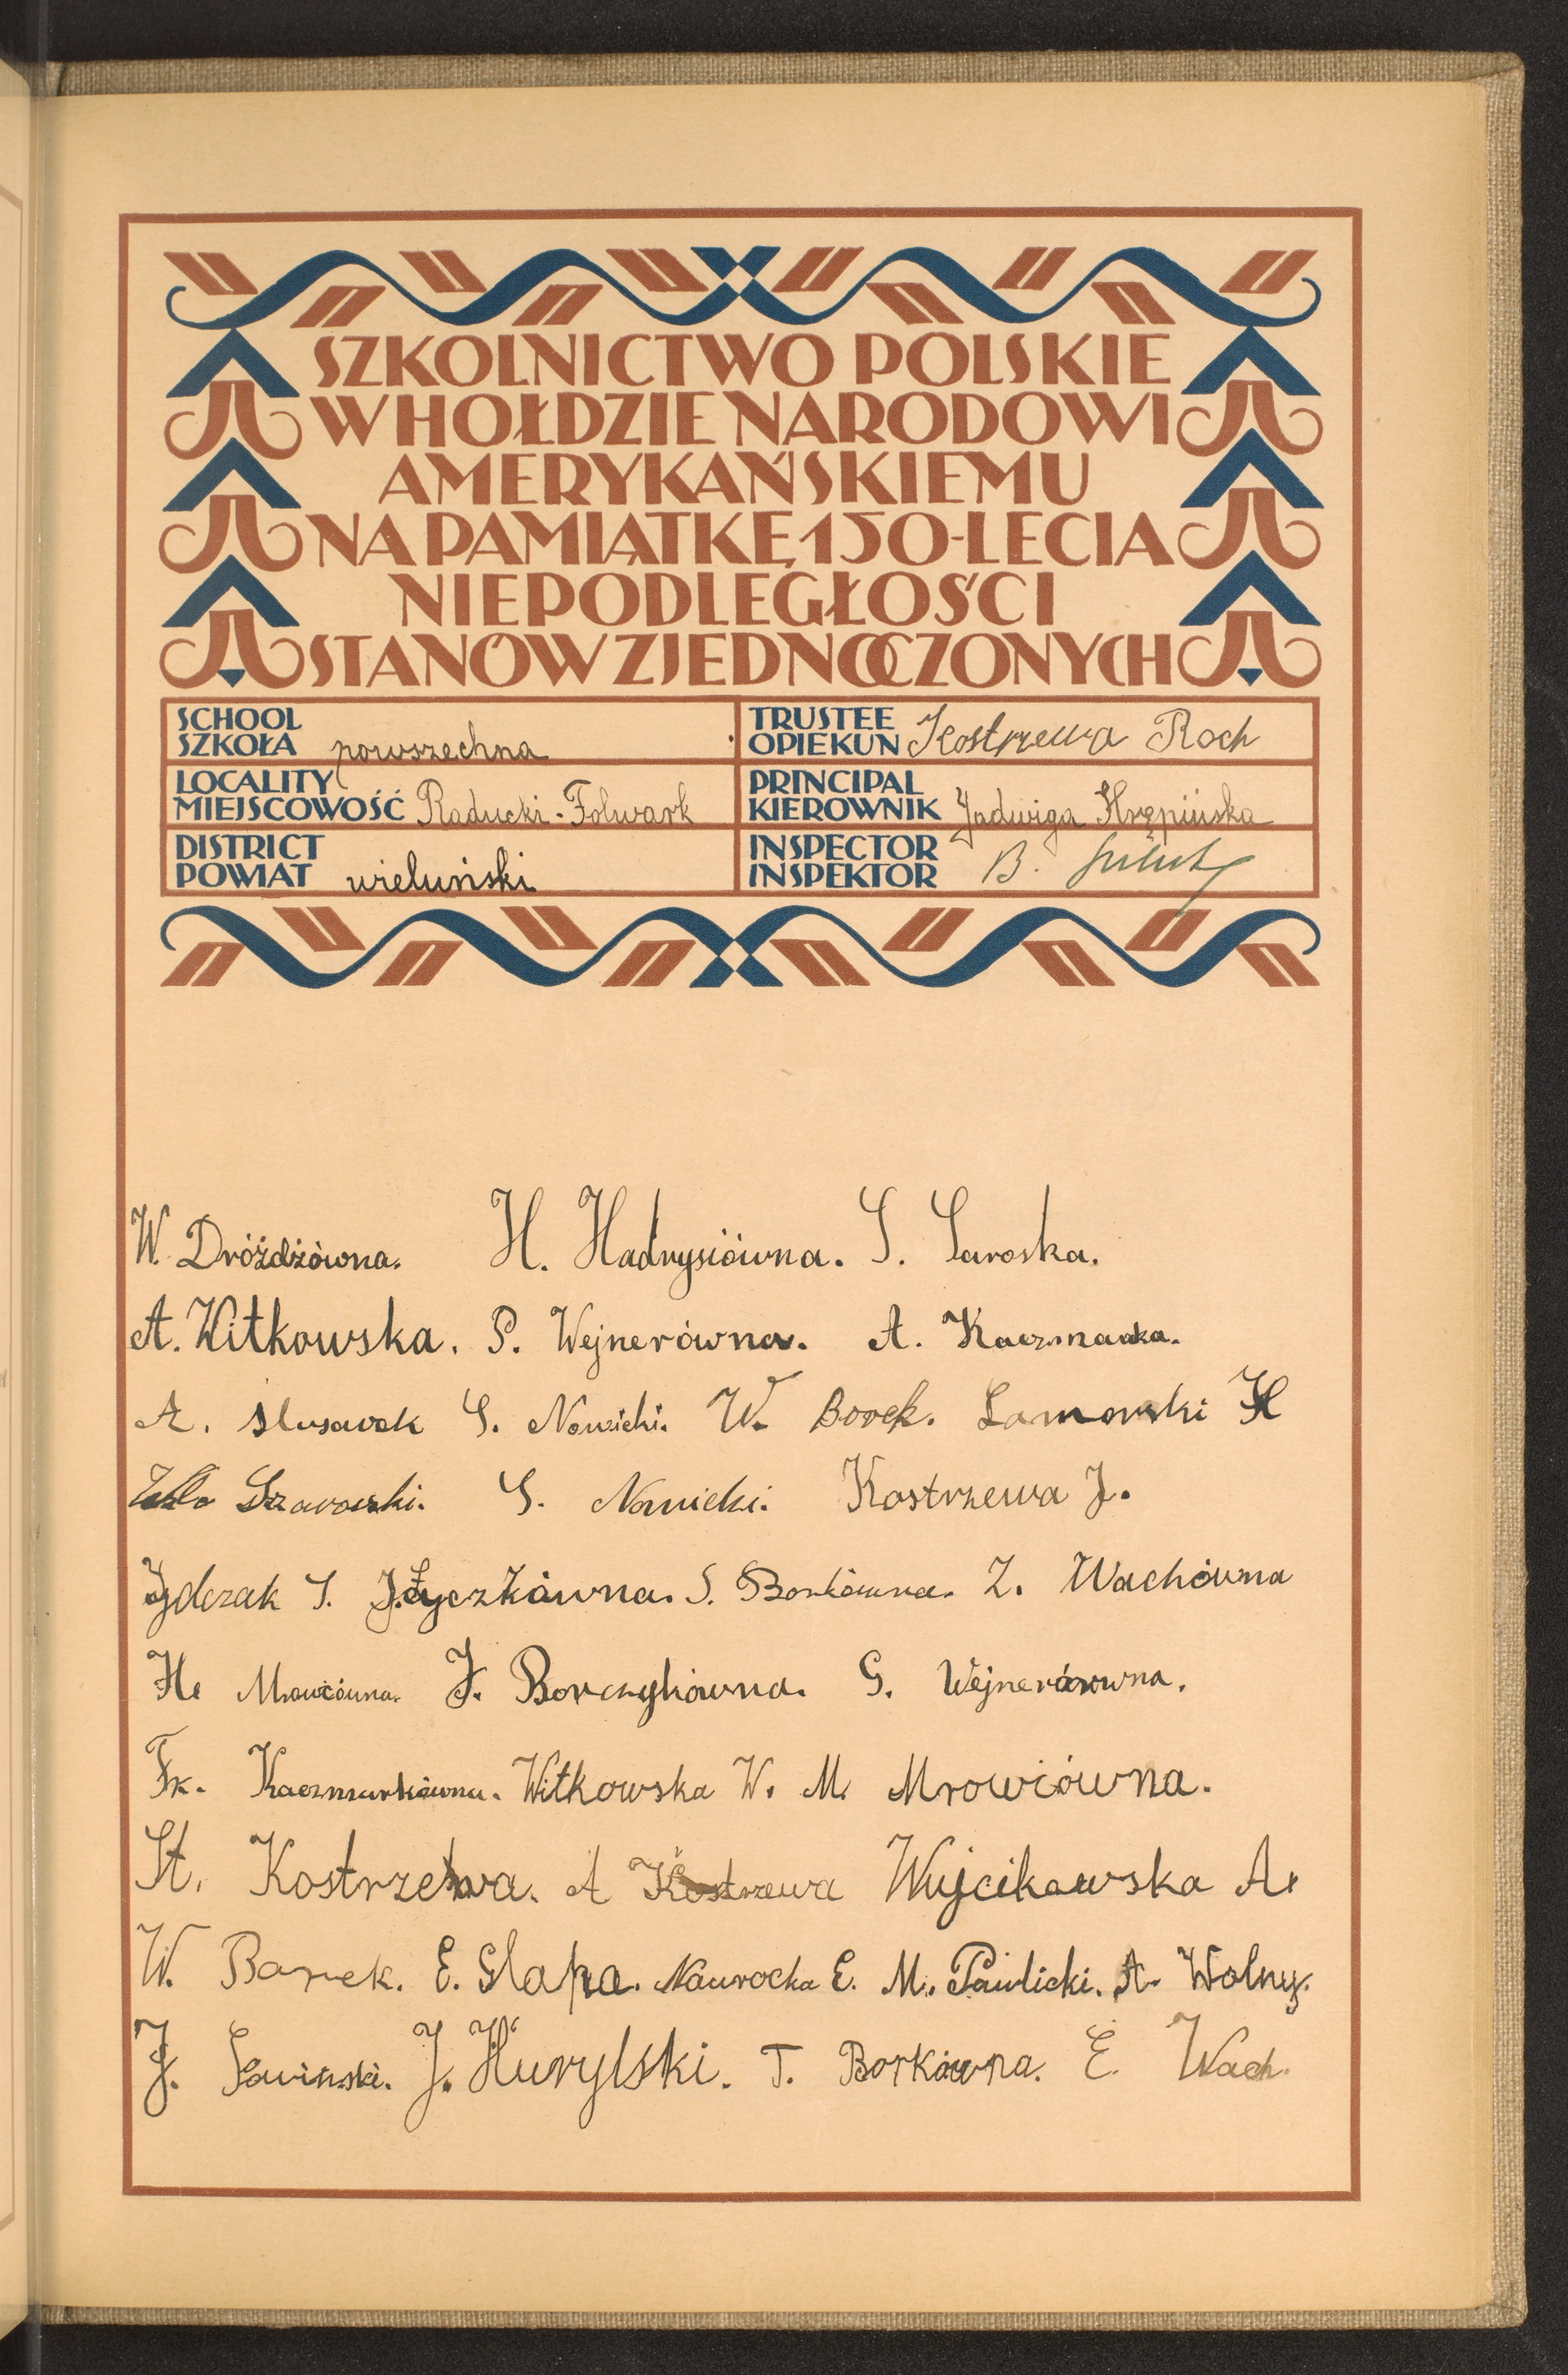 SZKOLNICTWO POLSKIE
W HOŁDZIE NARODOWI
AMERYKAŃSKIEMU
NA PAMIĄTKĘ 150-LECIA
NIEPODLEGŁOŚCI
STANÓW ZJEDNOCZONYCH
SCHOOL
SZKOŁA powszechna
TRUSTEE
OPIEKUN Kostrzewa Roch
LOCALITY
MIEJSCOWOŚĆ Raducki-Folwark
PRINCIPAL
KIEROWNIK Jadwiga Hrępińska
DISTRICT
POWIAT wieluński
INSPECTOR
INSPEKTOR B.
W. Dróżdżówna. H. Hadrysiówna. S. Saroska.
A. Witkowska. P. Wejnerówna. A. Kaczmarka.
A. Slusarek S. Nowicki. W. Borek. Lamowski H
S. Nowicki. Kostrzewa J.
Jdczak S. J. Łyczkówna. S. Borkówna. Z. Wachówna
H. Mrowiówna. J. Borczykówna. G. Wejnerówna.
Fr. Kaczmarkówna. Witkowska W. M. Mrowiówna.
St. Kostrzewa. A Kostrzewa Wujcikowska A.
W. Borek. E. Slapa. Nawrocka E. M. Pawlicki. A. Wolny.
J. Sawinski. J. Kurylski. T. Borkówna. E. Wach.